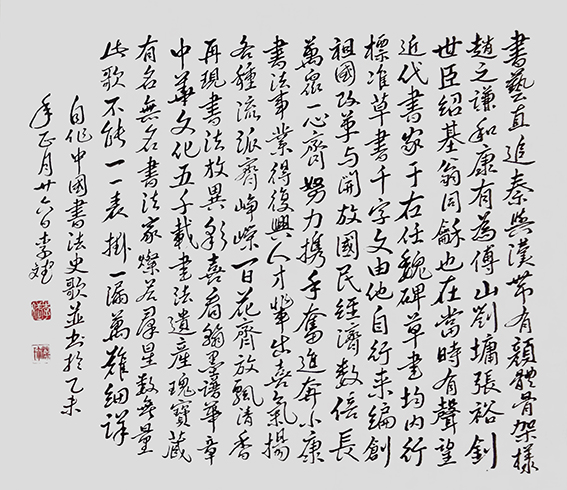 書藝直追秦與漢帶有顏體骨架樣
趙之謙和康有為傅山劉墉張裕釗
世臣紹基翁同龢也在當時有聲望
近代書家于右任魏碑草書均内行
標准草書千字文由他自行来編創
祖國改革与開放國民經濟數倍長
萬眾一心齊努力携手奮進奔小康
書法事業得復興人才輩出喜氣揚
各種流派齊峥嶸百花齊放飄清香
再現書法放異彩喜看翰墨譜華章
中華文化五千載書法遺產瑰寶藏
有名無名書法家燦若羣星數無量
此歌不能一一表掛一漏萬難細詳
自作中國書法史歌並书於乙未
年正月廿六日李斌